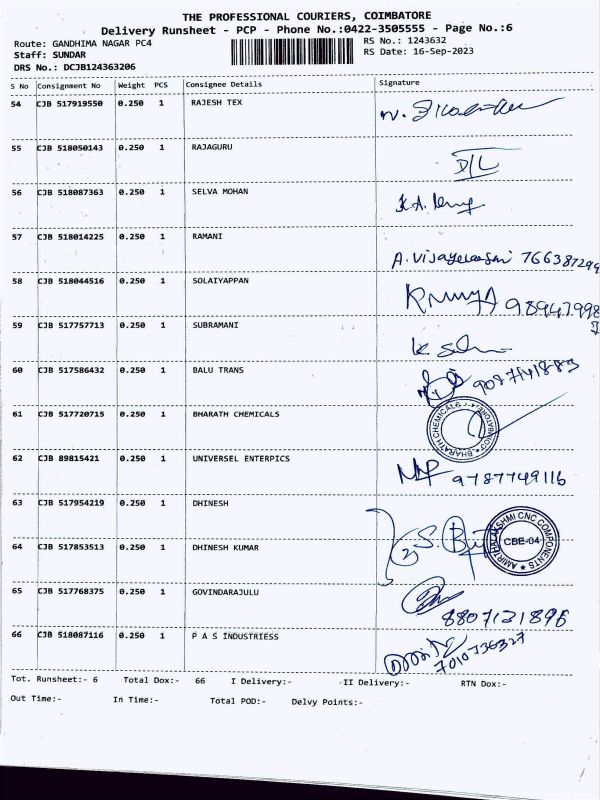 THE PROFESSIONAL COURIERS, COIMBATORE
Delivery Runsheet - PCP - Phone No.:0422-3505555 - Page No.:6
Route: GANDHIMA NAGAR PC4 RS No.: 1243632
Staff: SUNDAR RS Date: 16-Sep-2023
DRS No.: DCJB124363206
S No Consignment No Weight PCS Consignee Details Signature
54 CJB 517919550 0.250 1 RAJESH TEX
55 CJB 518050143 0.250 1 RAJAGURU D/L
56 CJB 518087363 0.250 1 SELVA MOHAN
57 CJB 518014225 0.250 1 RAMANI
58 CJB 518044516 0.250 1 SOLAIYAPPAN
59 CJB 517757713 0.250 1 SUBRAMANI
60 CJB 517586432 0.250 1 BALU TRANS 9087141883
61 CJB 517720715 0.250 1 BHARATH CHEMICALS BHARATH CHEMICALS COIMBATORE
62 CJB 89815421 0.250 1 UNIVERSEL ENTERPICS 9787749116
63 CJB 517954219 0.250 1 DHINESH
64 CJB 517853513 0.250 1 DHINESH KUMAR AMIRTHALAKSHMI CNC COMPONENTS CBE-04
65 CJB 517768375 0.250 1 GOVINDARAJULU
8807131896
66 CJB 518087116 0.250 1 P A S INDUSTRIESS
7010736327
Tot. Runsheet:- 6 Total Dox:- 66 I Delivery:- II Delivery:- RTN Dox:-
Out Time:- In Time:- Total POD:- Delvy Points:-